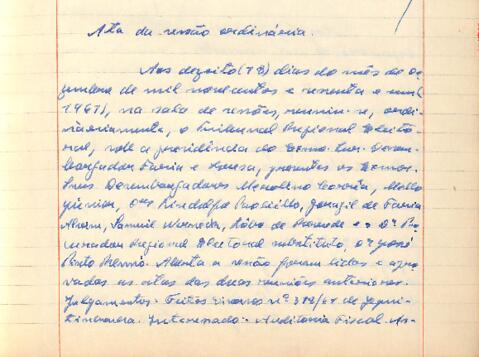 Ata da sessão ordinária.
Aos dezoito (18) dias do mês de De
zembro de mil novecentos e sessenta e um (
1961), na sala de sessões, reuniu-se, ordi-
nàriamente, o Tribunal Regional Eleito-
ral, sob a presidência do Exmo. Snr. Desem-
bargador Faria e Sousa, presentes os Exmos.
Snrs. Desembargadores Merolino Corrêa, Mello
Júnior, Drs. Lindolfo Paolielo, de Faria
Alvim, Samuel Werneck, Lôbo de Resende e o Dr. Pro-
curador Regional Eleitoral substituto, Dr. José
Pinto Aberta a sessão foram lidas e apro-
vadas as atas das duas reuniões anteriores.
Julgamentos:- Feitos diversos nº 312/61 de Jequi-
tinhonha. Interessado:- Auditoria Fiscal. As-